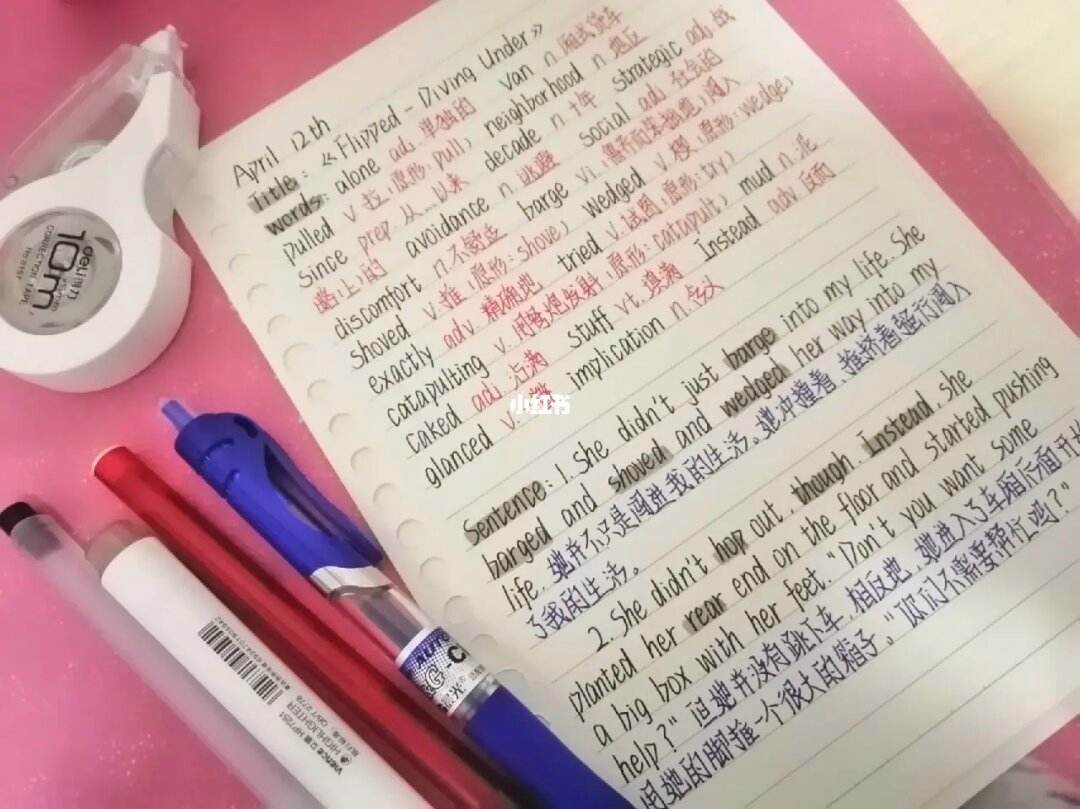 April 12th
Title: 《Flipped - Diving Under》
words: alone adj 单独的 van n 厢式货车
pulled v. 拉 (原形: pull) neighborhood n 地区
since prep. 从…以来 decade n 十年 strategic adj 战
略(上)的 avoidance n 逃避 social adj 社会的
discomfort n 不舒适 barge vi. 闯入
shoved v. 推 (原形: shove) wedged v. 楔 (原形: wedge)
exactly adv. 精确地 tried v. 试图 (原形: try) mud n. 泥
catapulting v. 发射 (原形: catapult) Instead adv 反而
caked adj 沾满 stuff vt. 填满
glanced v. implication n. 含义
Sentence: 1. She didn't just barge into my life. She
barged and shoved and wedged her way into my
life. 她并不只是闯进我的生活。她冲撞着、推挤着强行闯入
了我的生活。
2. She didn't hop out, though. Instead, she
planted her rear end on the floor and started pushing
a big box with her feet. "Don't you want some
help?" 但她并没有跳下车,相反地,她进入了车厢里面开始
用她的脚推一个很大的箱子。"你们不需要帮忙吗?"
小红书
deli 得力
10m
CORRECTION TAPE
NO.8157
HIGHLIGHTER